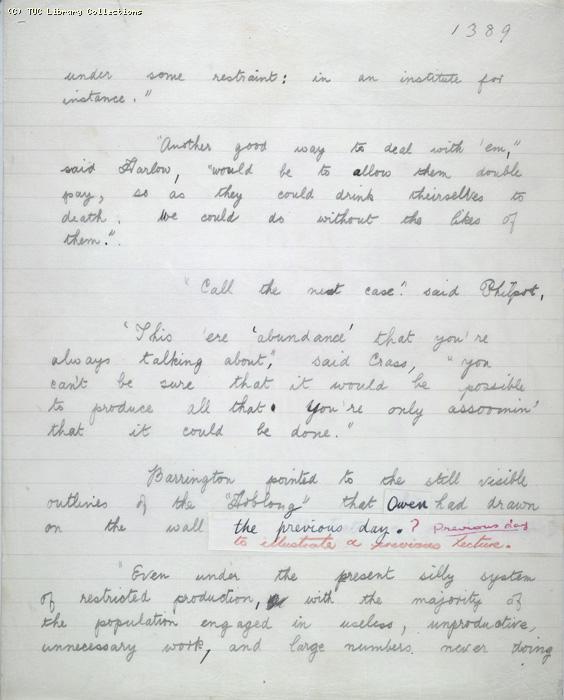 (C) TUC Library Collections
1389
under some restraint: in an institute for
instance."
"Another good way to deal with 'em,"
said Harlow, "would be to allow them double
pay, so as they could drink theirselves to
death. We could do without the likes of
them.".
"Call the next case". said Philpot.
'This 'ere 'abundance' that you're
always talking about," said Crass, "you
can't be sure that it would be possible
to produce all that. You're only assoomin'
that it could be done."
Barrington pointed to the still visible
outlines of the "Hoblong" that Owen had drawn
on the wall the previous day. ? Previous day
to illustrate a previous lecture.
"Even under the present silly system
of restricted production, with the majority of
the population engaged in useless, unproductive,
unnecessary work, and large numbers never doing